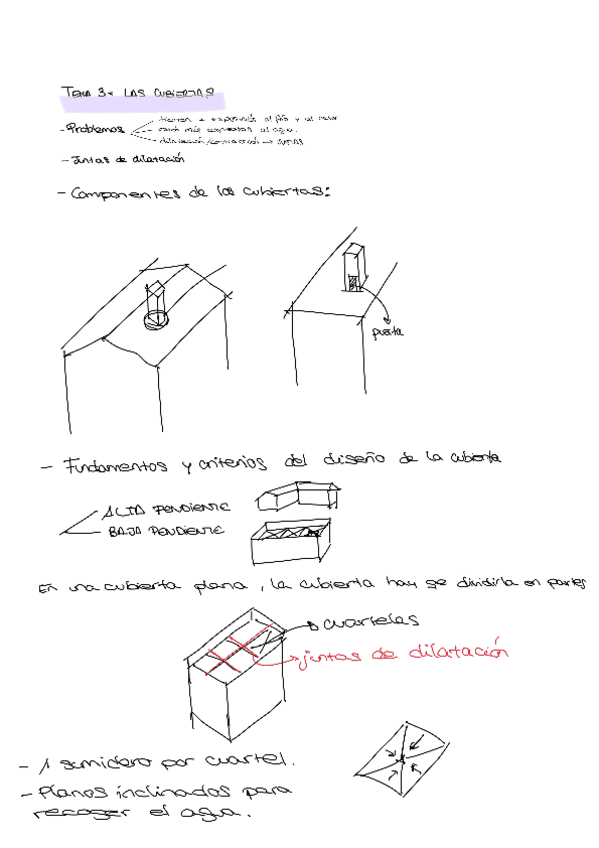 TEMA 3. LAS CUBIERTAS
- Problemas
tienen + exposición al frío y al calor
están más expuestas al agua.
dilatación/contracción → JUNTAS
- Juntas de dilatación
- Componentes de las cubiertas:
puerta
- Fundamentos y criterios del diseño de la cubierta
ALTA PENDIENTE
BAJA PENDIENTE
En una cubierta plana, la cubierta hay se dividirla en partes
cuartelas
juntas de dilatación
- 1 sumidero por cuartel.
- Planos inclinados para
recoger el agua.